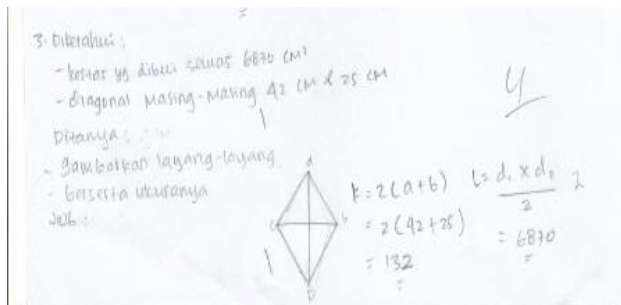 3. Diketahui :
- kertas yg dibeli seluas 6870 CM²
- diagonal Masing-Masing 42 CM & 25 CM
Ditanya :
- gambarkan layang-layang
- berserta ukuranya
Jwb :
k = 2(a+b)
= 2(42+25)
= 132
=
L = d₁ x d₂
2
= 6870
=
2
4